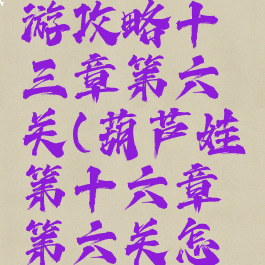 游攻略十
三章第六
关(葫芦娃
第十六章
第六关怎